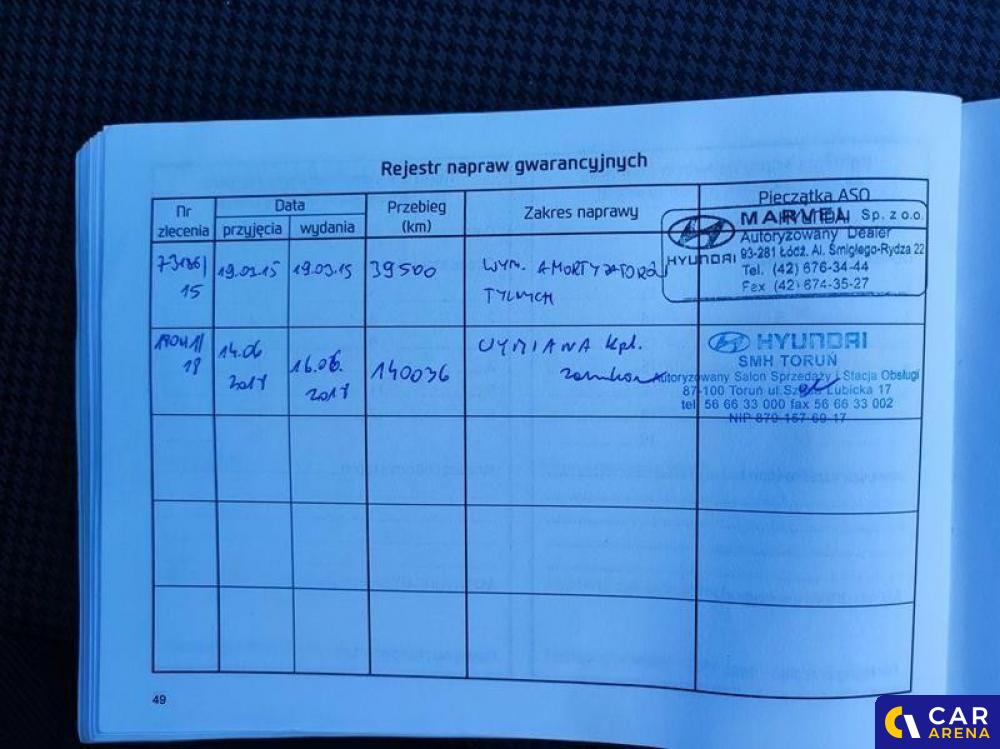 Rejestr napraw gwarancyjnych
Nr zlecenia
Data
przyjęcia
wydania
Przebieg (km)
Zakres naprawy
Pieczątka ASO
15
19.03.15
19.03.15
39500
WYM. AMORTYZATORÓW
TYLNYCH
HYUNDAI
MARVEL Sp. z o.o.
Autoryzowany Dealer
93-281 Łódź, Al. Śmigłego-Rydza 22
Tel. (42) 676-34-44
Fax (42) 674-35-27
18
14.06
2018
16.06.
2018
140036
WYMIANA kpl.
HYUNDAI
SMH TORUŃ
Autoryzowany Salon Sprzedaży i Stacja Obsługi
87-100 Toruń ul. Lubicka 17
tel. 56 66 33 000 fax 56 66 33 002
NIP 879-157-69-17
49
CAR
ARENA